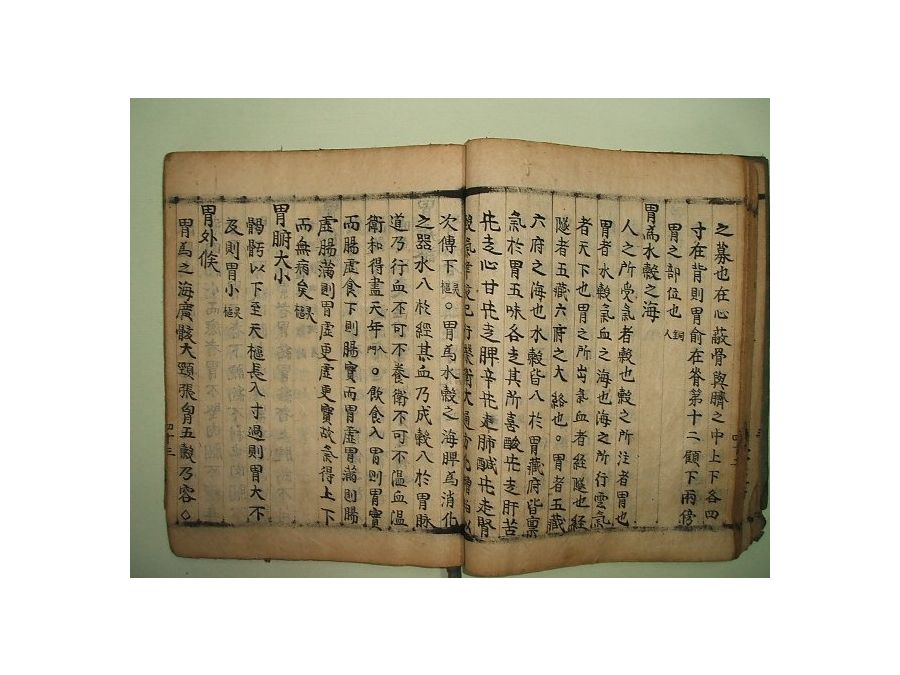 之募也在心蔽骨與臍之中上下各四
寸在背則胃俞在脊第十二顀下兩傍
胃之部位也 銅人
胃為水穀之海
人之所受氣者穀也穀之所注者胃也
胃者水穀氣血之海也海之所行雲氣
者天下也胃之所出氣血者経隧也経
隧者五藏六府之大絡也。胃者五藏
六府之海也水穀皆入於胃藏府皆禀
氣於胃五味各走其所喜酸先走肝苦
先走心甘先走脾辛先走肺鹹先走腎
次傳下灵樞。胃為水穀之海脾為消化
之器水入於經其血乃成穀入於胃脉
道乃行血不可不養衛不可不温血温
衛和得盡天年入門。飲食入胃則胃實
而腸虛食下則腸實而胃虛胃滿則腸
虛腸滿則胃虛更虛更實故氣得上下
而無病矣灵樞
胃腑大小
𩩲骬以下至天樞長八寸過則胃大不
及則胃小灵樞
胃外候
胃為之海廣骸大頸張胷五穀乃容。
四十三